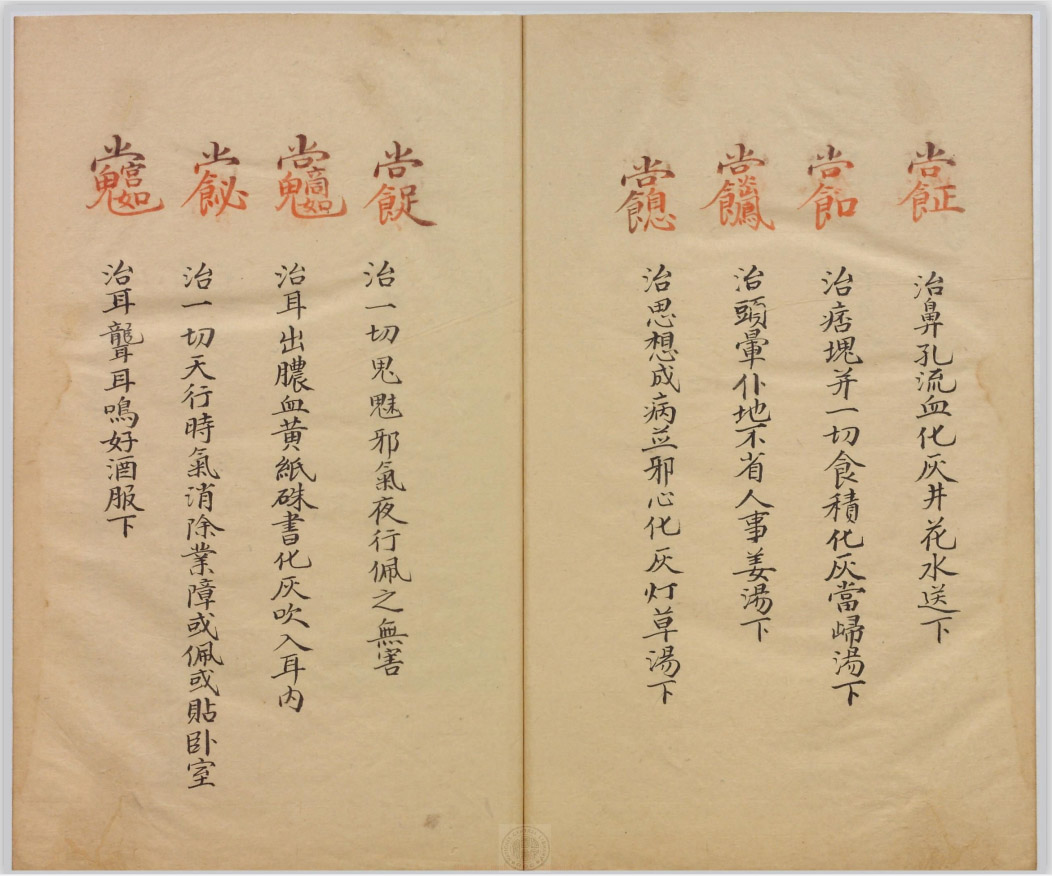 治鼻孔流血化灰井花水送下
治痞塊并一切食積化灰當歸湯下
治頭暈仆地不省人事姜湯下
治思想成病並邪心化灰灯草湯下
治一切鬼魅邪氣夜行佩之無害
治耳出膿血黄紙硃書化灰吹入耳内
治一切天行時氣消除業障或佩或貼卧室
治耳聾耳鳴好酒服下